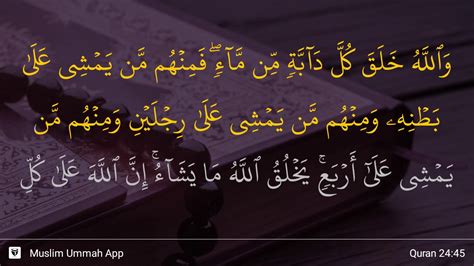 وَٱللَّهُ خَلَقَ كُلَّ دَآبَّةٍ مِّن مَّآءٍ ۖ فَمِنْهُم مَّن يَمْشِى عَلَىٰ
بَطْنِهِۦ وَمِنْهُم مَّن يَمْشِى عَلَىٰ رِجْلَيْنِ وَمِنْهُم مَّن
يَمْشِى عَلَىٰٓ أَرْبَعٍ ۚ يَخْلُقُ ٱللَّهُ مَا يَشَآءُ ۚ إِنَّ ٱللَّهَ عَلَىٰ كُلِّ
Muslim Ummah App
Quran 24:45